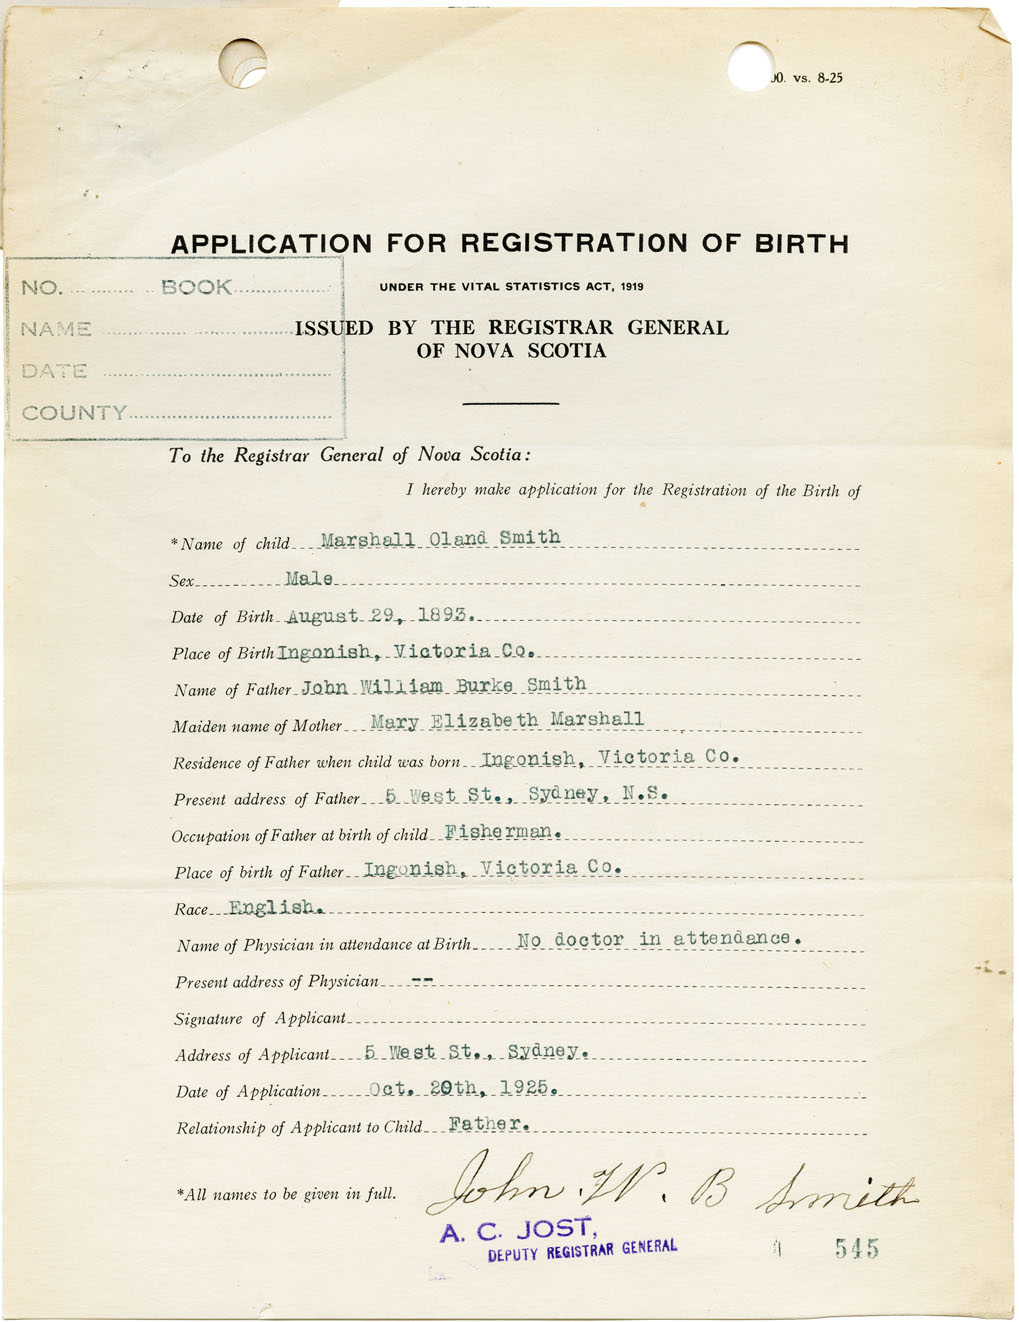 00. vs. 8-25
APPLICATION FOR REGISTRATION OF BIRTH
UNDER THE VITAL STATISTICS ACT, 1919
ISSUED BY THE REGISTRAR GENERAL
OF NOVA SCOTIA
NO. ............ BOOK................
NAME ................................
DATE ................................
COUNTY................................
To the Registrar General of Nova Scotia:
I hereby make application for the Registration of the Birth of
*Name of child Marshall Oland Smith
Sex Male
Date of Birth August 29, 1893.
Place of Birth Ingonish, Victoria Co.
Name of Father John William Burke Smith
Maiden name of Mother Mary Elizabeth Marshall
Residence of Father when child was born Ingonish, Victoria Co.
Present address of Father 5 West St., Sydney, N.S.
Occupation of Father at birth of child Fisherman.
Place of birth of Father Ingonish, Victoria Co.
Race English.
Name of Physician in attendance at Birth No doctor in attendance.
Present address of Physician --
Signature of Applicant
Address of Applicant 5 West St., Sydney.
Date of Application Oct. 20th, 1925.
Relationship of Applicant to Child Father.
*All names to be given in full. John .W. B Smith
A. C. JOST,
DEPUTY REGISTRAR GENERAL
545